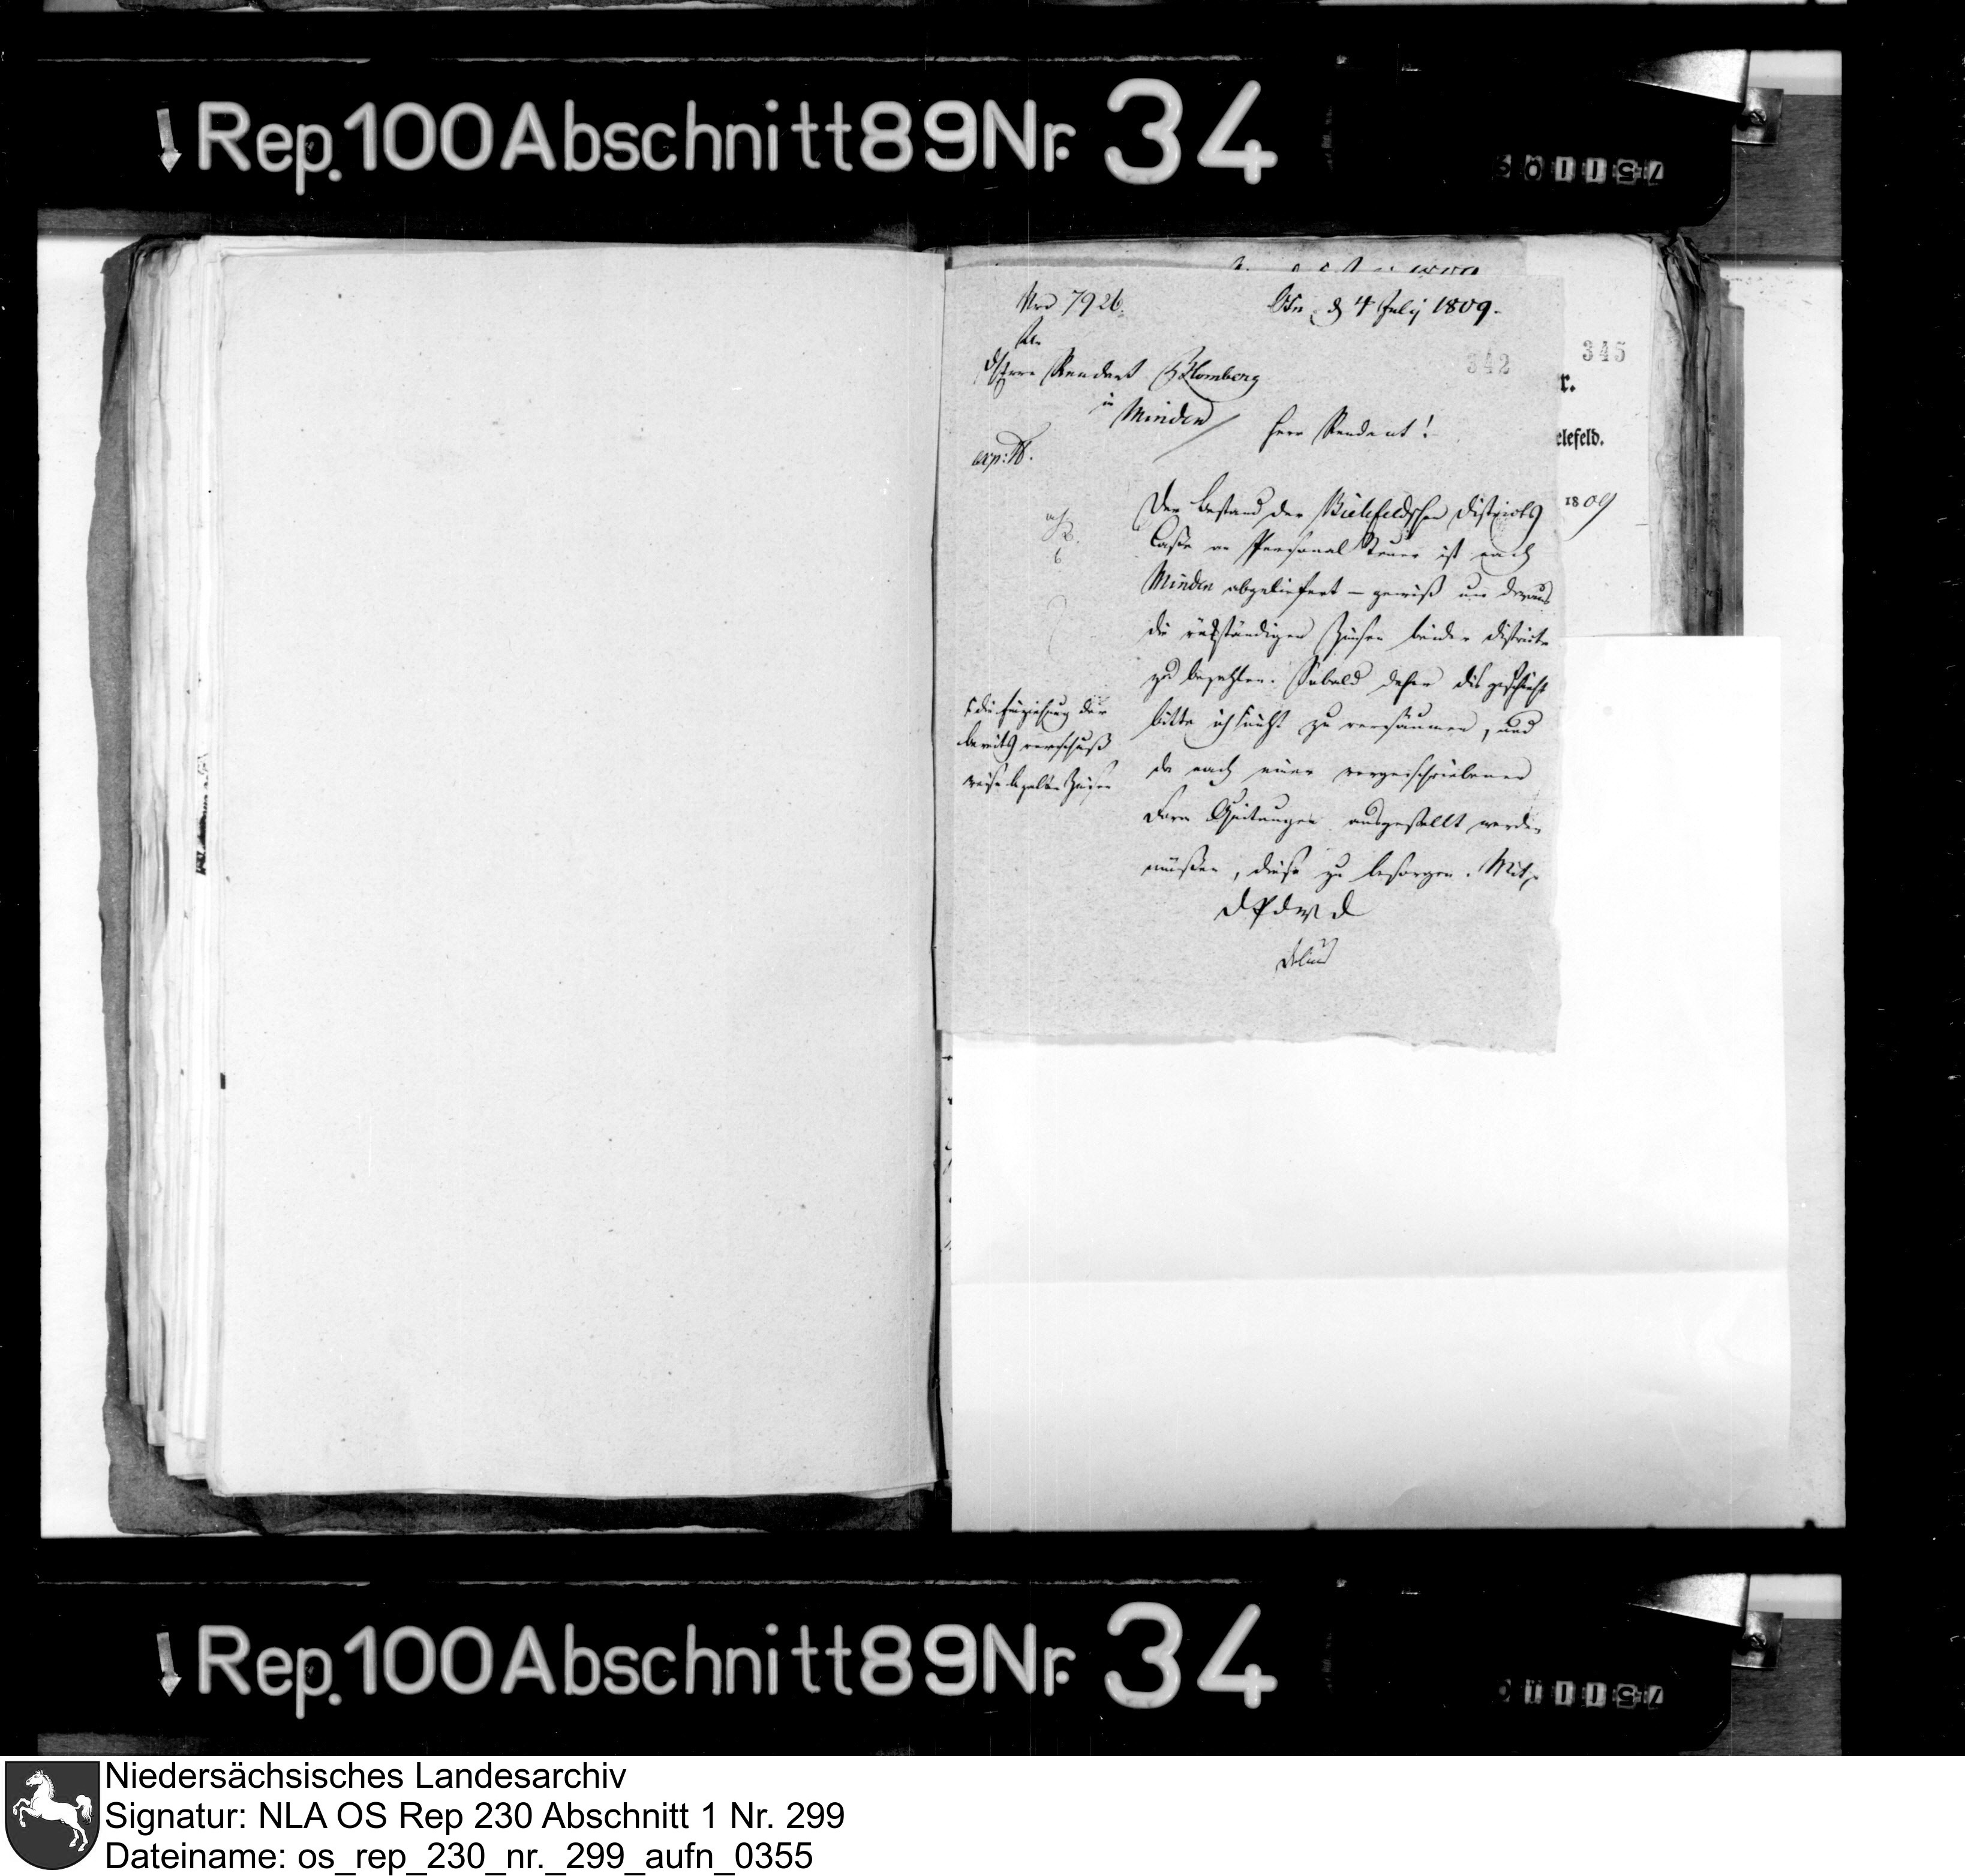 Rep. 100 Abschnitt 89 Nr. 34
Nro 7926.
Osn. d 4 July 1809.
An
d Herrn Rendant Blomberg
in Minden
342
345
r.
elefeld.
1809
Herr Rendant!
exp:
Der Bestand der Bielefeldschen Districts
Casse an Personal Steuer ist nach
Minden abgeliefert – gewiß um daraus
die rükständigen Zinsen beider Districte
zu bezahlen. Sobald daher dis geschieht
bitte ich nicht zu versäumen, und
da nach einer vorgeschriebenen
Form Quitungen ausgestellt werden
müssen, diese zu besorgen. Mit
die Einziehung der
bereits vorschuß
weise bezalten Zinsen
D P d W D
Rep. 100 Abschnitt 89 Nr. 34
Niedersächsisches Landesarchiv
Signatur: NLA OS Rep 230 Abschnitt 1 Nr. 299
Dateiname: os_rep_230_nr._299_aufn_0355